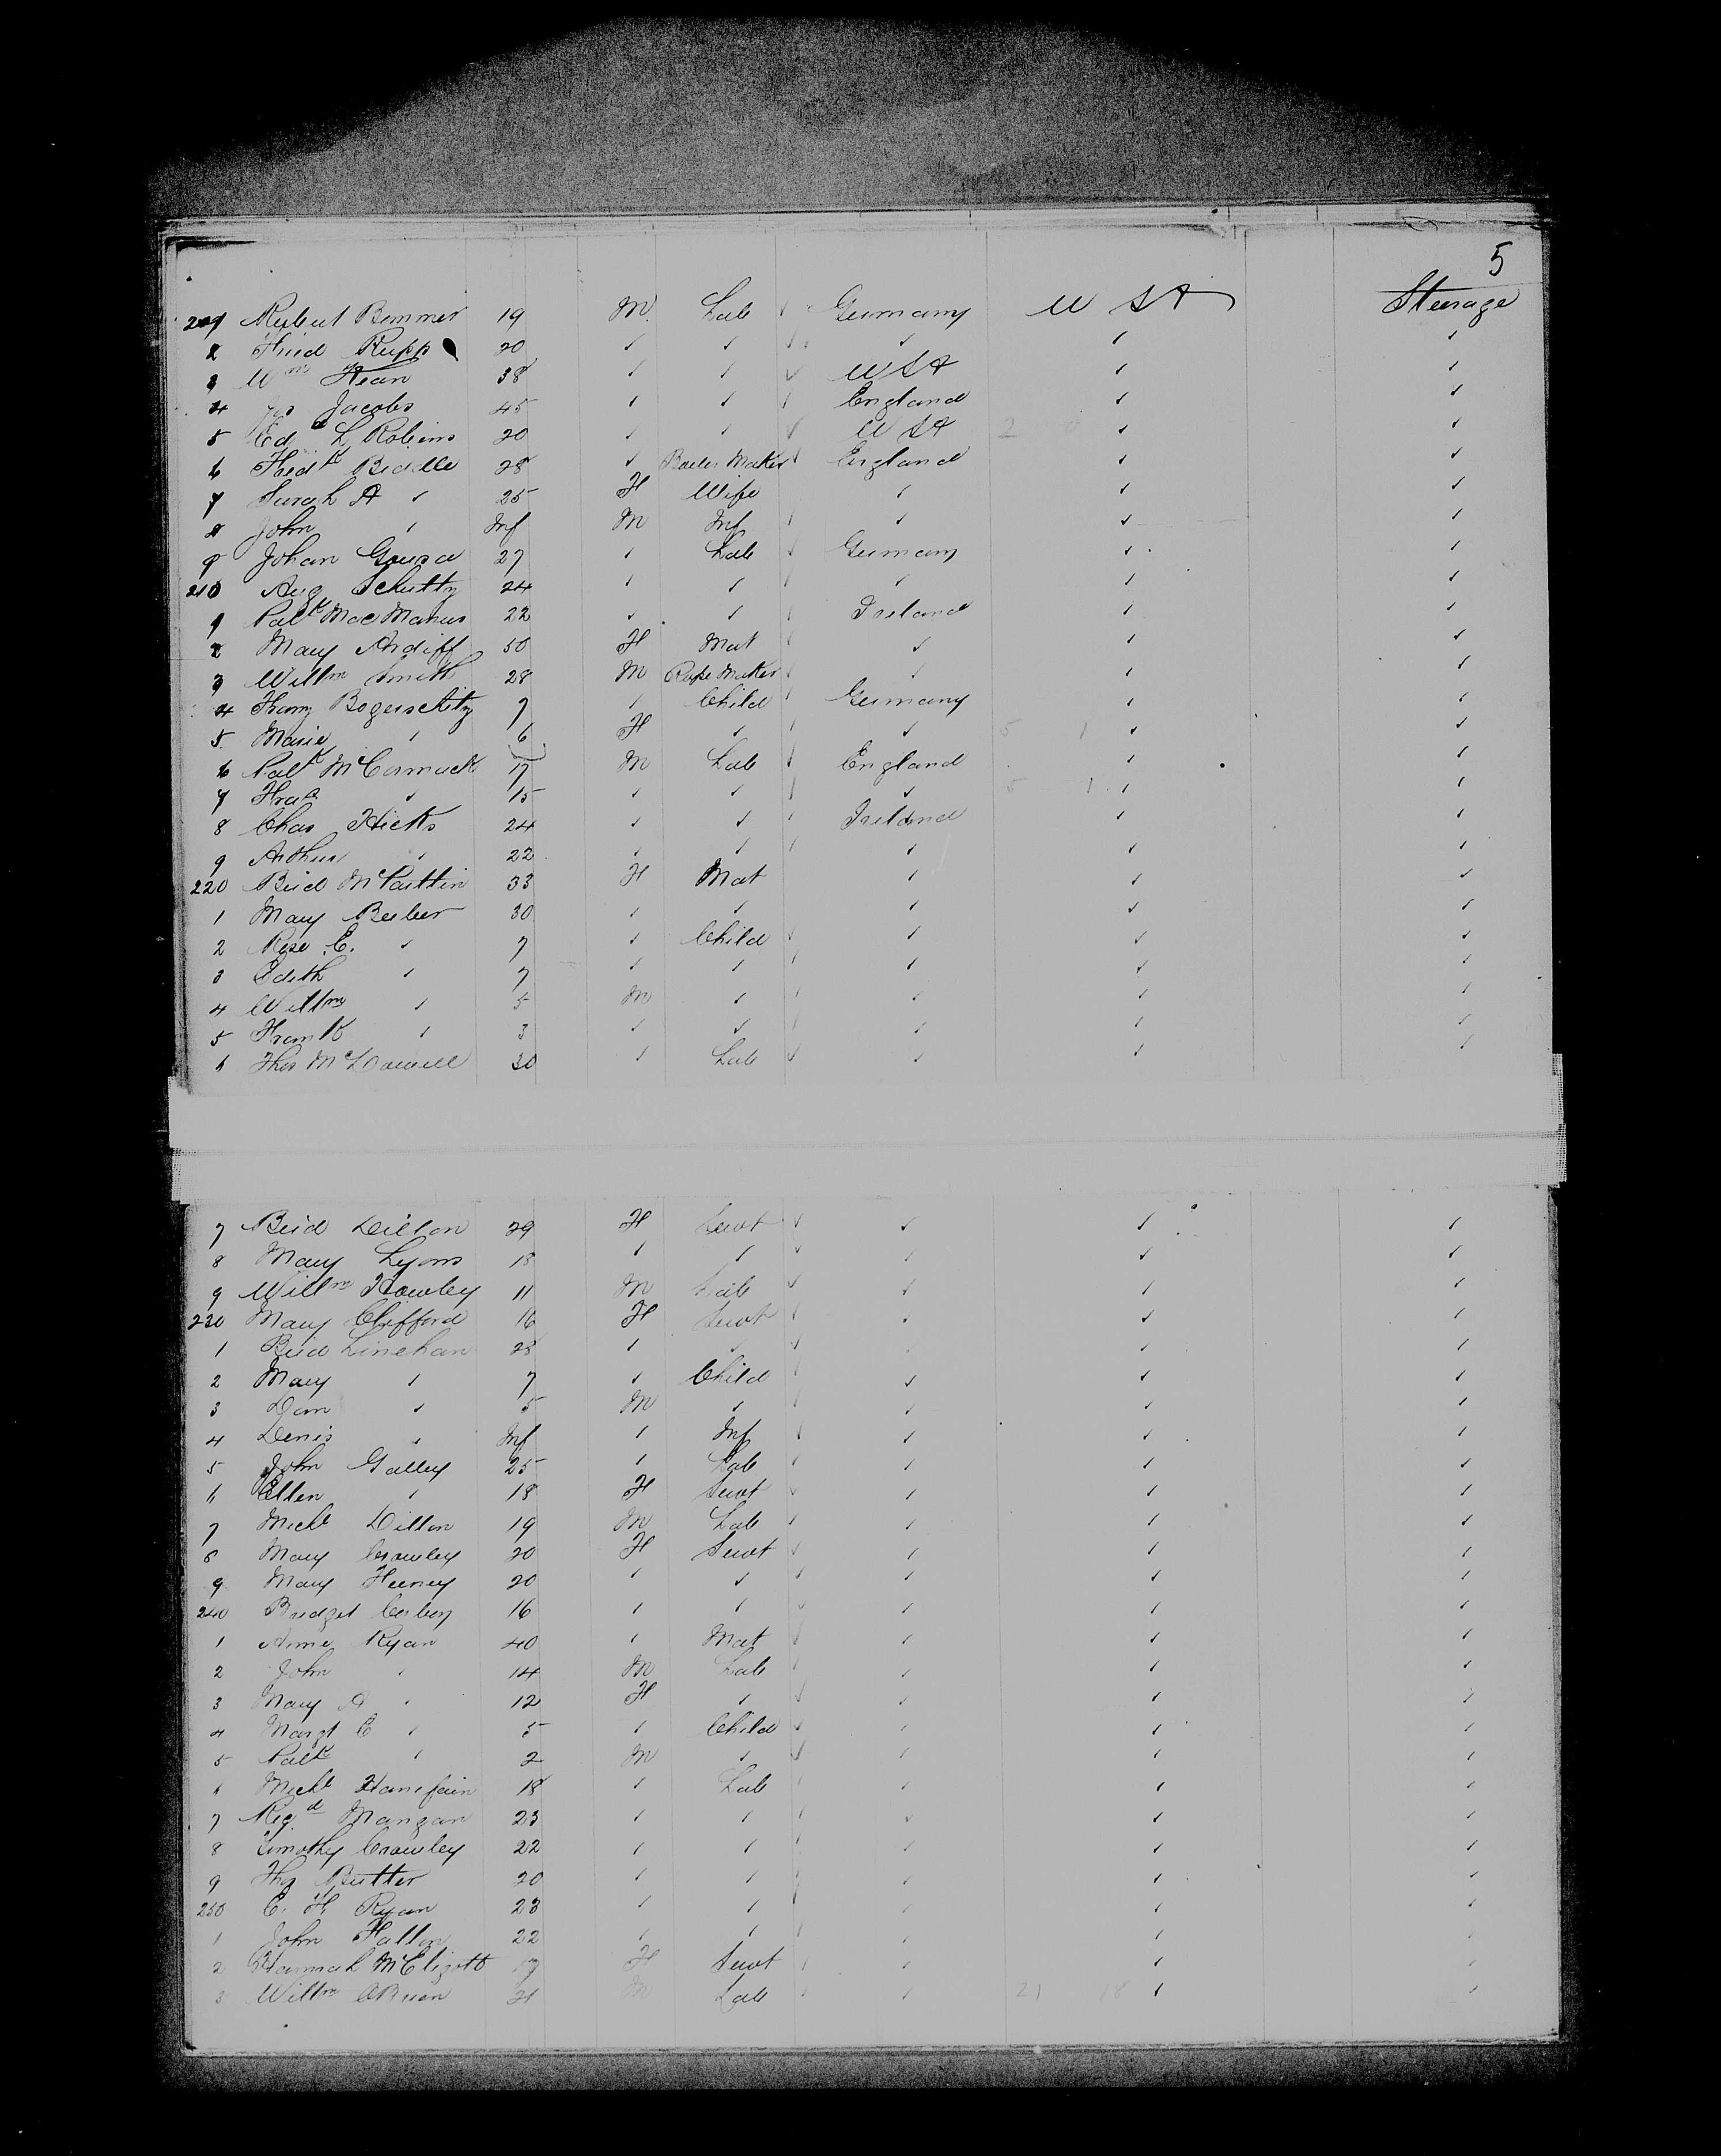 5
201 Robert Bemmer 19 M Lab ✓ Germany U S A Steerage
2 Fried Rupp 20 ✓ ✓ ✓ ✓ ✓ ✓
3 Wm Kean 38 ✓ ✓ ✓ U S A ✓ ✓
4 Jas Jacobs 45 ✓ ✓ ✓ England ✓ ✓
5 Ed L Robins 20 ✓ ✓ ✓ U S A 2 ✓ ✓
6 Fredk Biddle 28 ✓ Boiler Maker ✓ England ✓ ✓
7 Sarah A ✓ 25 F Wife ✓ ✓ ✓
8 John ✓ Inf M Inf ✓ ✓ ✓ ✓
9 Johan 27 ✓ Lab ✓ Germany ✓ ✓
210 Aug Schultz 24 ✓ ✓ ✓ ✓ ✓ ✓
1 Patk MacManus 22 ✓ ✓ ✓ Ireland ✓ ✓
2 Mary Ardiff 50 F Mat ✓ ✓ ✓ ✓
3 Willm Smith 28 M Rope Maker ✓ ✓ ✓ ✓
4 Franz Boguschitz 7 ✓ Child ✓ Germany ✓ ✓
5 Marie ✓ 6 F ✓ ✓ ✓ 5 1 ✓ ✓
6 Patk McCormack 17 M Lab ✓ England ✓ ✓
7 Fras ✓ 15 ✓ ✓ ✓ ✓ 5 1 ✓ ✓
8 Chas Hicks 24 ✓ ✓ ✓ Ireland ✓ ✓
9 Arthur ✓ 22 ✓ ✓ ✓ ✓ ✓ ✓
220 Brid McPartlin 33 F Mat ✓ ✓ ✓
1 Mary Beeber 30 ✓ ✓ ✓ ✓ ✓
2 Rose E. ✓ 7 ✓ Child ✓ ✓ ✓ ✓
3 Edith ✓ 7 ✓ ✓ ✓ ✓ ✓ ✓
4 Willm ✓ 5 M ✓ ✓ ✓ ✓ ✓
5 Frank ✓ 3 ✓ ✓ ✓ ✓ ✓ ✓
6 Thos McDowell 30 ✓ Lab ✓ ✓ ✓ ✓
7 Brid Dillon 29 F Servt ✓ ✓ ✓ ✓
8 Mary Lyons 18 ✓ ✓ ✓ ✓ ✓ ✓
9 Willm Hawley 11 M Lab ✓ ✓ ✓ ✓
230 Mary Clifford 16 F Servt ✓ ✓ ✓ ✓
1 Brid Linehan 28 ✓ ✓ ✓ ✓ ✓ ✓
2 Mary ✓ 7 ✓ Child ✓ ✓ ✓ ✓
3 Dan ✓ 5 M ✓ ✓ ✓ ✓ ✓
4 Denis ✓ Inf ✓ Inf ✓ ✓ ✓ ✓
5 John Galley 25 ✓ Lab ✓ ✓ ✓ ✓
6 Ellen ✓ 18 F Servt ✓ ✓ ✓ ✓
7 Michl Dillon 19 M Lab ✓ ✓ ✓ ✓
8 Mary Crowley 20 F Servt ✓ ✓ ✓ ✓
9 Mary Feeney 20 ✓ ✓ ✓ ✓ ✓ ✓
240 Bridget Corboy 16 ✓ ✓ ✓ ✓ ✓ ✓
1 Anne Ryan 40 ✓ Mat ✓ ✓ ✓ ✓
2 John ✓ 14 M Lab ✓ ✓ ✓ ✓
3 Mary A ✓ 12 F ✓ ✓ ✓ ✓ ✓
4 Margt E ✓ 5 ✓ Child ✓ ✓ ✓ ✓
5 Patk ✓ 2 M ✓ ✓ ✓ ✓ ✓
6 Michl Hanifain 18 ✓ Lab ✓ ✓ ✓ ✓
7 Regd Mangan 23 ✓ ✓ ✓ ✓ ✓ ✓
8 Timothy Crowley 22 ✓ ✓ ✓ ✓ ✓ ✓
9 Thos Butter 20 ✓ ✓ ✓ ✓ ✓ ✓
250 E. H. Ryan 23 ✓ ✓ ✓ ✓ ✓ ✓
1 John Fallon 22 ✓ ✓ ✓ ✓ ✓ ✓
2 Hannah McEligott 17 F Servt ✓ ✓ ✓ ✓
3 Willm OBrien 21 M Lab ✓ ✓ 21 18 ✓ ✓